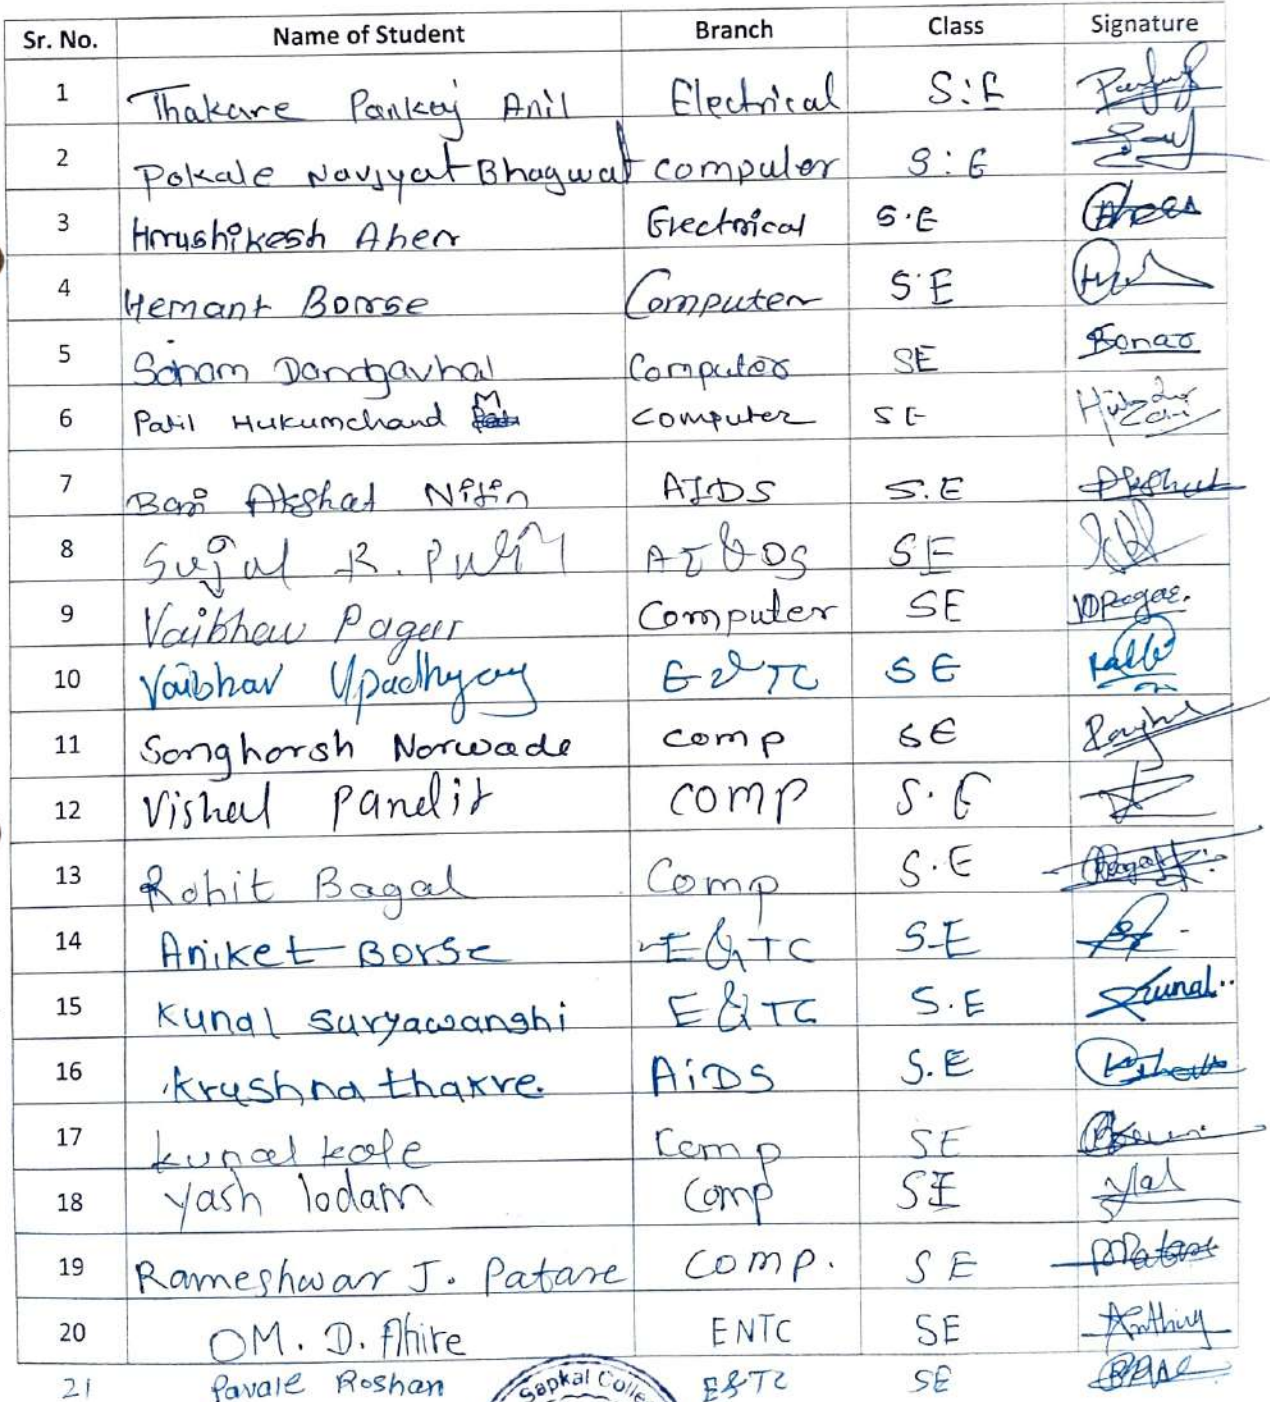 Sr. No. Name of Student Branch Class Signature
1 Thakare Pankaj Anil Electrical S.E
2 Pokale Navjyat Bhagwat computer S.E
3 Hrushikesh Aher Electrical S.E
4 Hemant Borse Computer S.E
5 Sonam Dandgavhal Computer SE Sonam
6 Patil Hukumchand M computer SE
7 Bari Akshat Nitin AIDS S.E Akshat
8 Sujal R. AI & DS SE
9 Vaibhav Pagar Computer SE
10 Vaibhav Upadhyay E & TC SE
11 Songhorsh Norwade comp SE
12 Vishal Pandit comp S.E
13 Rohit Bagal Comp S.E
14 Aniket Borse E&TC S.E
15 Kunal Suryawanshi E&TC S.E Kunal..
16 Krushna thakre. AiDS S.E
17 kunal kale Comp SE
18 Yash lodam Comp SE
19 Rameshwar J. Patare comp. SE
20 OM. D. Ahire ENTC SE
21 Pavale Roshan E&TC SE
Sapkal Colle